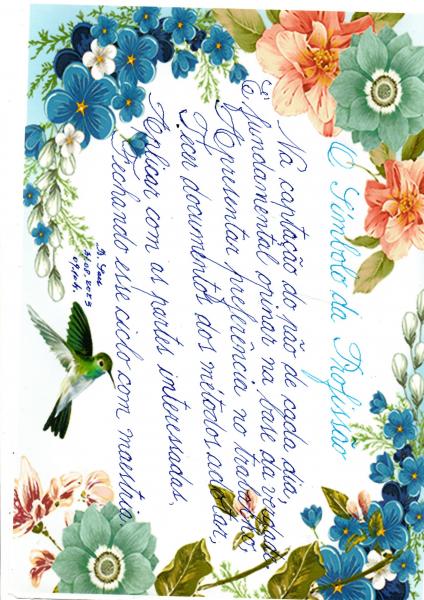 O Símbolo da Profissão
Na captação do pão de cada dia,
É fundamental opinar na base da verdade
Apresentar preferência no trabalho,
Teu documento dos métodos adotar,
Aplicar com as partes interessadas,
Fechando esse ciclo com maestria.
31.08.2023